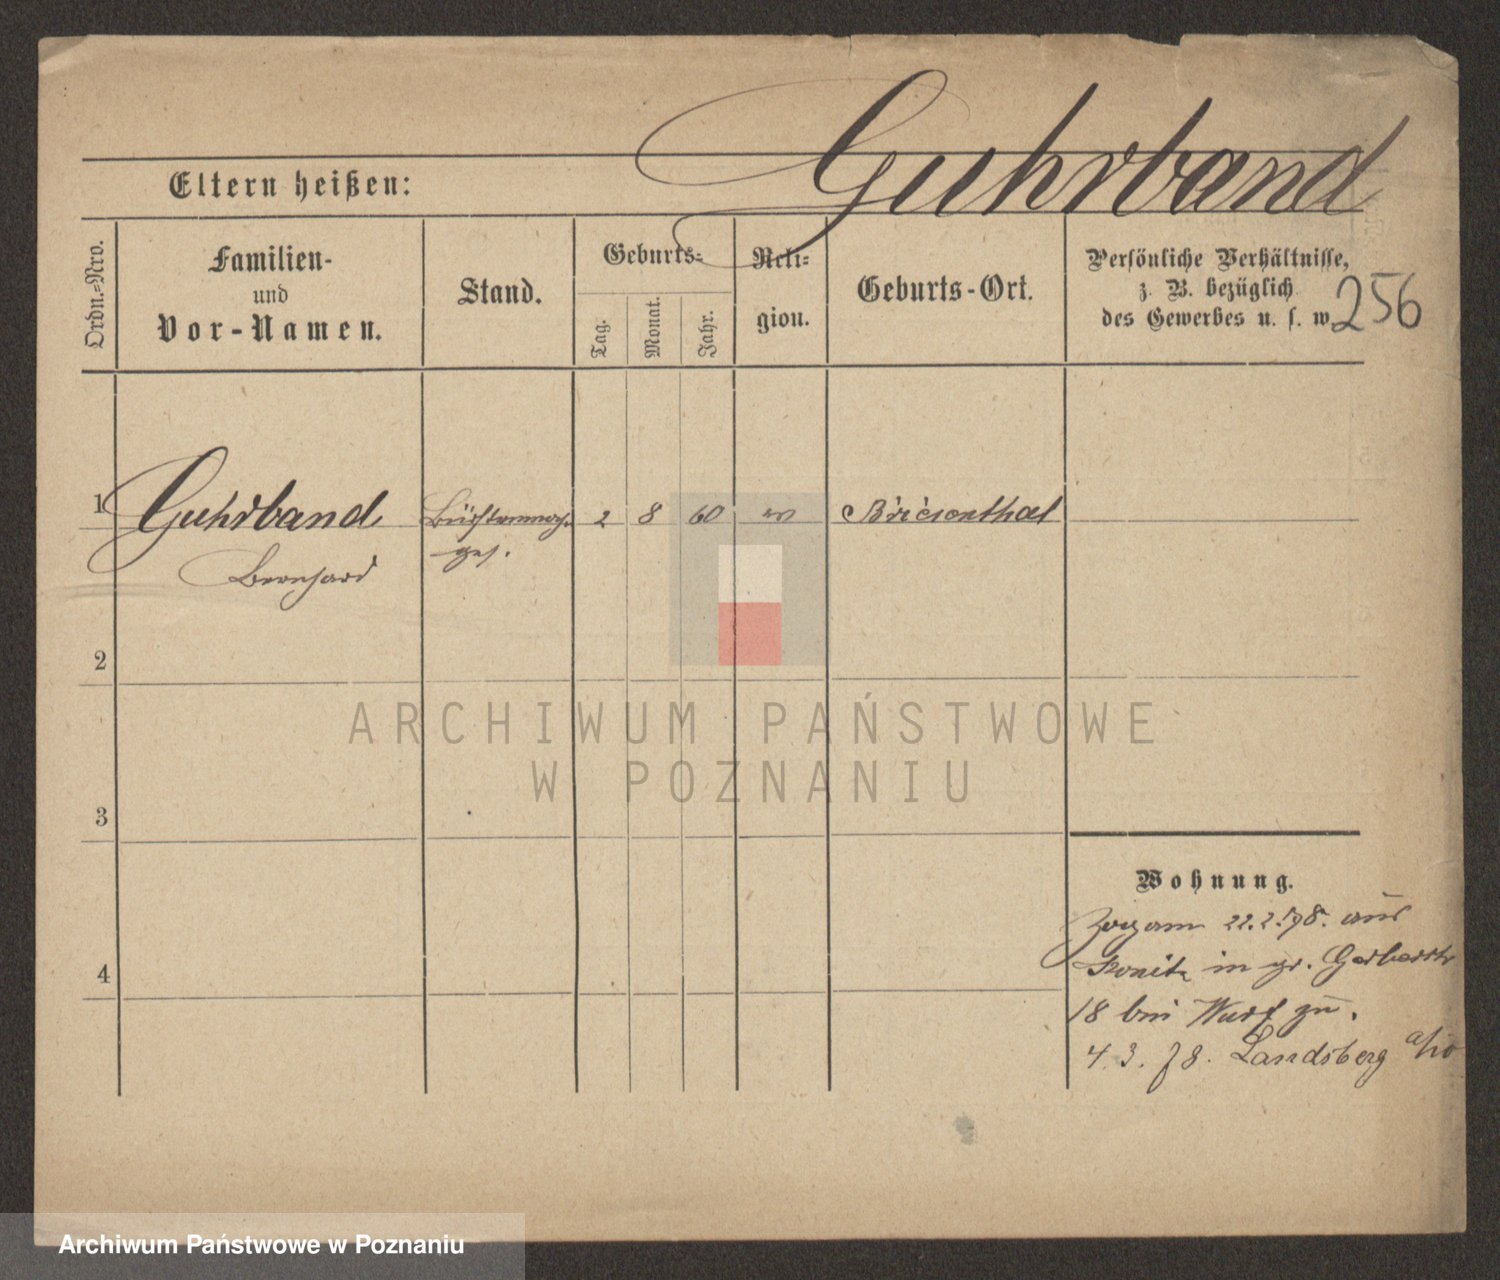 Guhrband
Eltern heißen:
Ordn.-Nro.
Familien-
und
Vor-Namen.
Stand.
Geburts-
Tag.
Monat.
Jahr.
Reli-
gion.
Geburts-Ort.
Persönliche Verhältnisse,
z. B. bezüglich
des Gewerbes u. s. w.
256
1 Guhrband Bürstenmach. 2 8 60 Briesenthal
Bernhard ges.
2
3
4
Wohnung.
Zog am 22.2.78. aus
Konitz in gr. Gerberstr
18 bei Wurf zu.
4.3.78. Landsberg a/w
ARCHIWUM PAŃSTWOWE
W POZNANIU
Archiwum Państwowe w Poznaniu